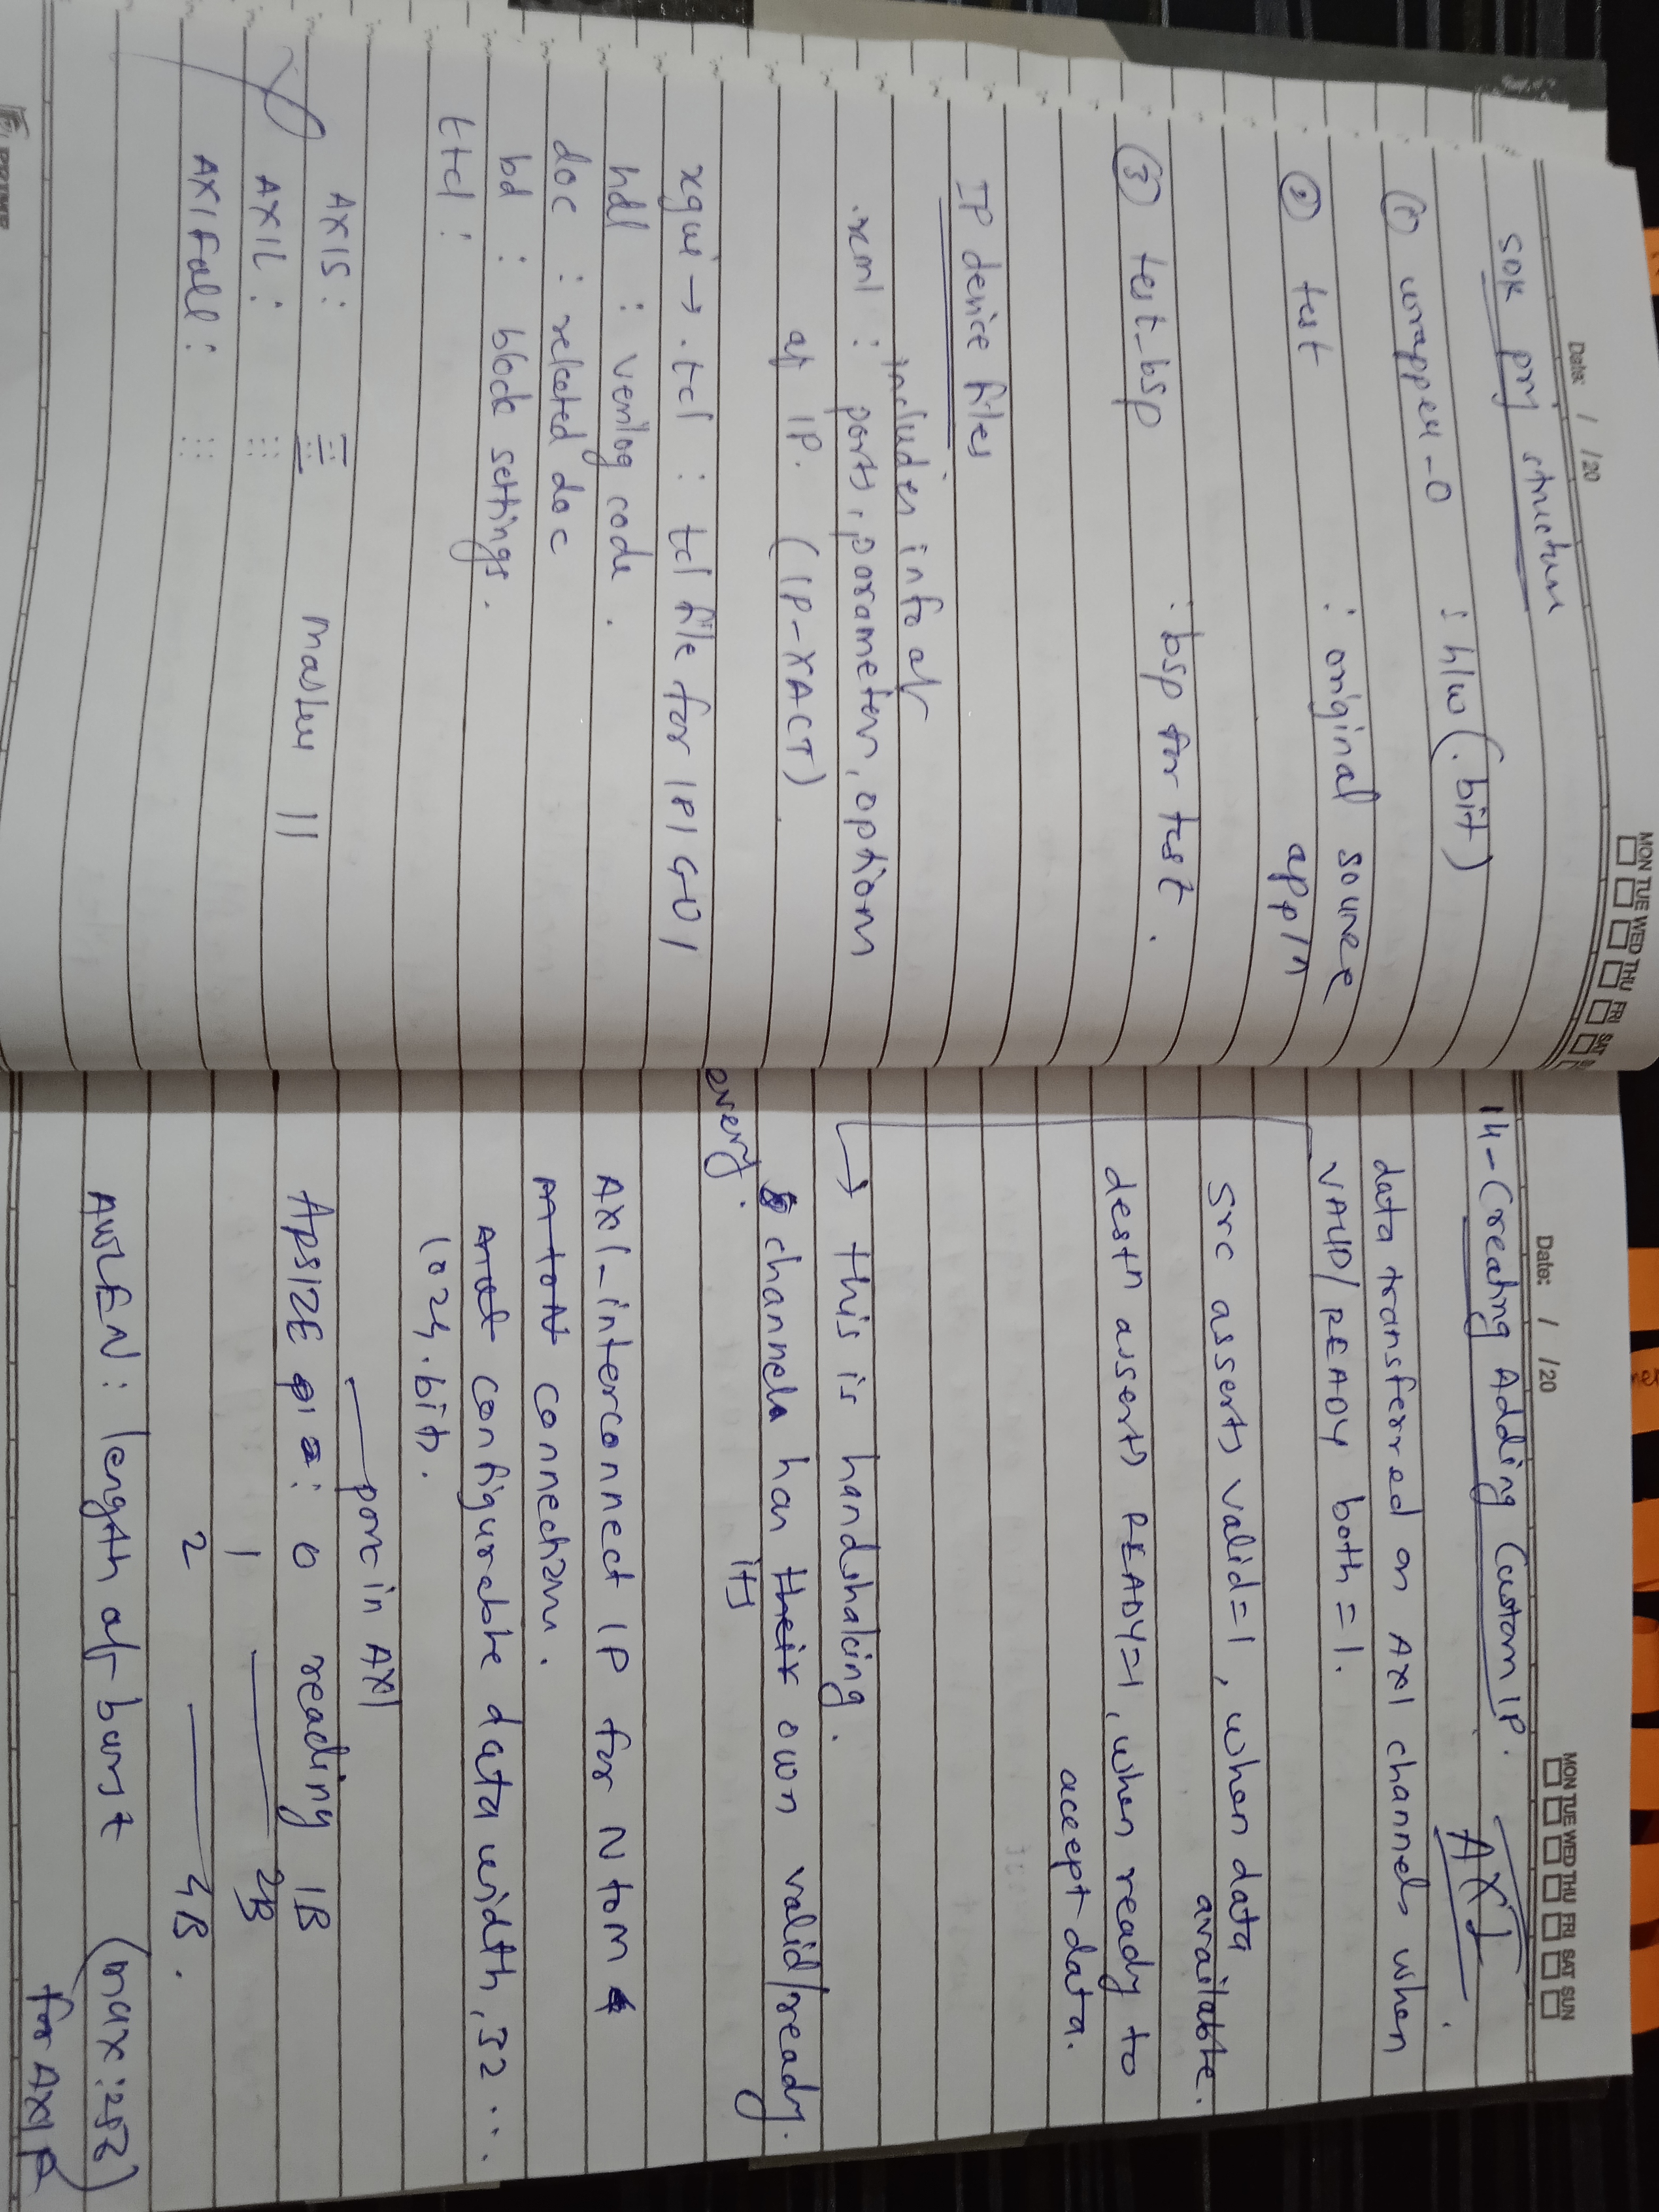 Date: / /20
MON TUE WED THU FRI SAT
SDK prj structure
① wrapper-0 : h/w (.bit)
② test : original source
appln
③ test_bsp : bsp for test.
IP device files
includes info of
.xml : ports, parameters, options
of IP. (IP-XACT)
xgui → .tcl : tcl file for IP GUI
hdl : verilog code.
doc : related doc
bd : block settings.
ttcl :
AXIS : Master ||
AXIL :
AXIFull :
PRIME
Date: / /20
MON TUE WED THU FRI SAT SUN
14-Creating Adding Custom IP.
AXI
data transferred on AXI channels when
VALID/READY both = 1.
Src asserts valid=1, when data
available.
destn asserts READY=1, when ready to
accept data.
→ this is handshaking.
every channels has their own valid/ready.
its
AXI-interconnect IP for N to M
connections.
configurable data width, 32 ...
1024 bits.
port in AXI
ARSIZE : 0 reading 1B
1 2B
2 4B.
AWLEN : length of burst (max: 256)
for AXI F